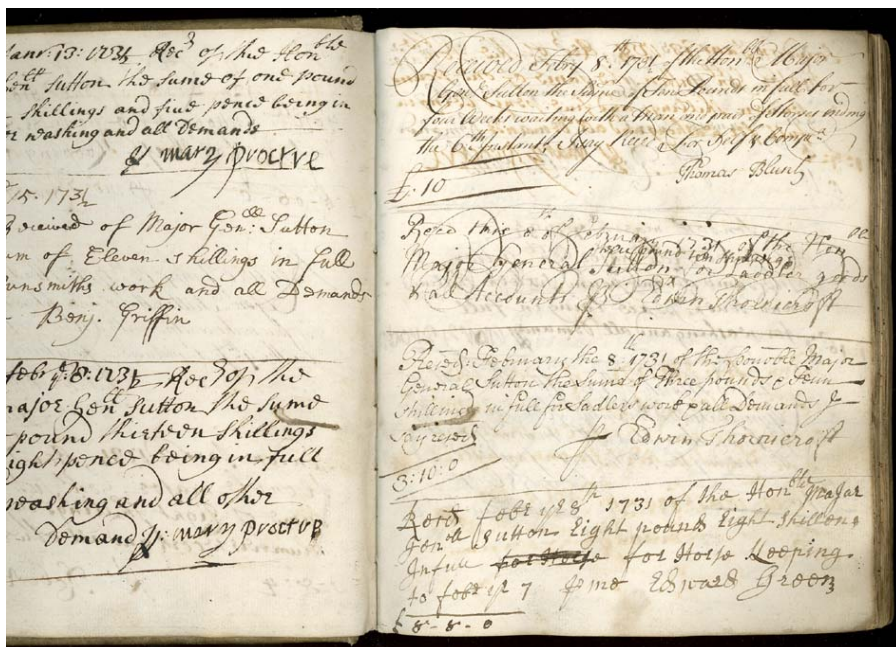 Janr: 13: 1731/2 Rec:d of the Hon:ble
Gen:ll Sutton the sume of one pound
shillings and five pence being in
washing and all Demands
mary Proctre
15. 1731/2
Received of Major Gen:ll Sutton
um of Eleven shillings in full
unsmiths work and all Demands
Benj. Griffin
febr y: 8: 1731/2 Rec:d of the
major Gen:ll Sutton the sume
pound thirteen shillings
ight pence being in full
washing and all other
Demand p: mary Proctre
Received Febry 8:th 1731 of the Hon:ble Major
Gen:l Sutton the Sume of Three Pounds in full for
four Weeks
the 6:th Instant
Thomas Blunt
£: 10
Reced this 8th of February 1731 of the Hon:ble
Major General Sutton for Sadler goods
& all Accounts Edwin Thornicroft
Reced: February the 8:th 1731 of the Honoble Major
General Sutton the Sume of Three pounds & Tenn
Shillings in full for Sadlers work & all Demands I
say reced p Edwin Thornicroft
3: 10: 0
Reced febr ye 8th 1731 of the Hon:ble Major
Gen:ll Sutton Eight pounds Eight Shillens
In full for Horse for Horse Keeping
to febr ye 7 p me Edward Green
£ 8 - 8 - 0